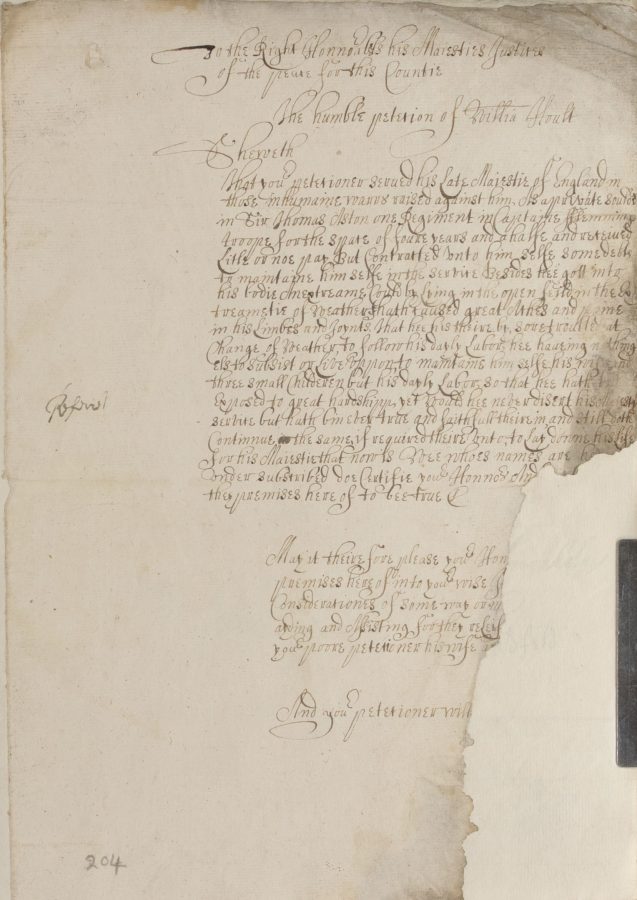 To the Right Honno:bls his Maiesties Justices
of the peace for this Countie
The humble petetion of Willia Hoult
Sheweth
That you:r petetioner served his Late Majestie of England in
those inhumane warrs raised against him, As a prevate souldi
in Sir Thomas Aston one Regiment in Captaine Flemming
troope for the space of foare years and a halfe and received
Litle or noe pay But Contracted unto him selfe some debts
to maintaine him selfe in the service Besides hee gott into
his bodie An extreame Could by Lying in the open feild in the Ex
treametie of Weather, hath caused great Aches and paine
in his Limbes and Joynts, That hee his thereby sore trouble at
Change of Weather, to follow his dayly Labor, hee haveing nothing
els to subsist or Live uppon to maintaine him selfe his wife and
three small Childeren but his dayly Labor, so that hee hath
Exposed to great hardshipp, yet would hee never disert his Majest
service but hath bin ever true and faithfull theirein and still doth
Continnue in the same, if required theire unto, to Lay downe his Life
for his Majestie that now is Wee whoes names are h
under subscribed doe Certifie you:r Honno:rs And
the premises here of to bee true &
May it theirefore please you:r Hon
premises here of into you:r wise
Considerationes of some way or
ayding and Assisting for they releif
you:r poore petetioner his wife
And you:r petetioner will
204